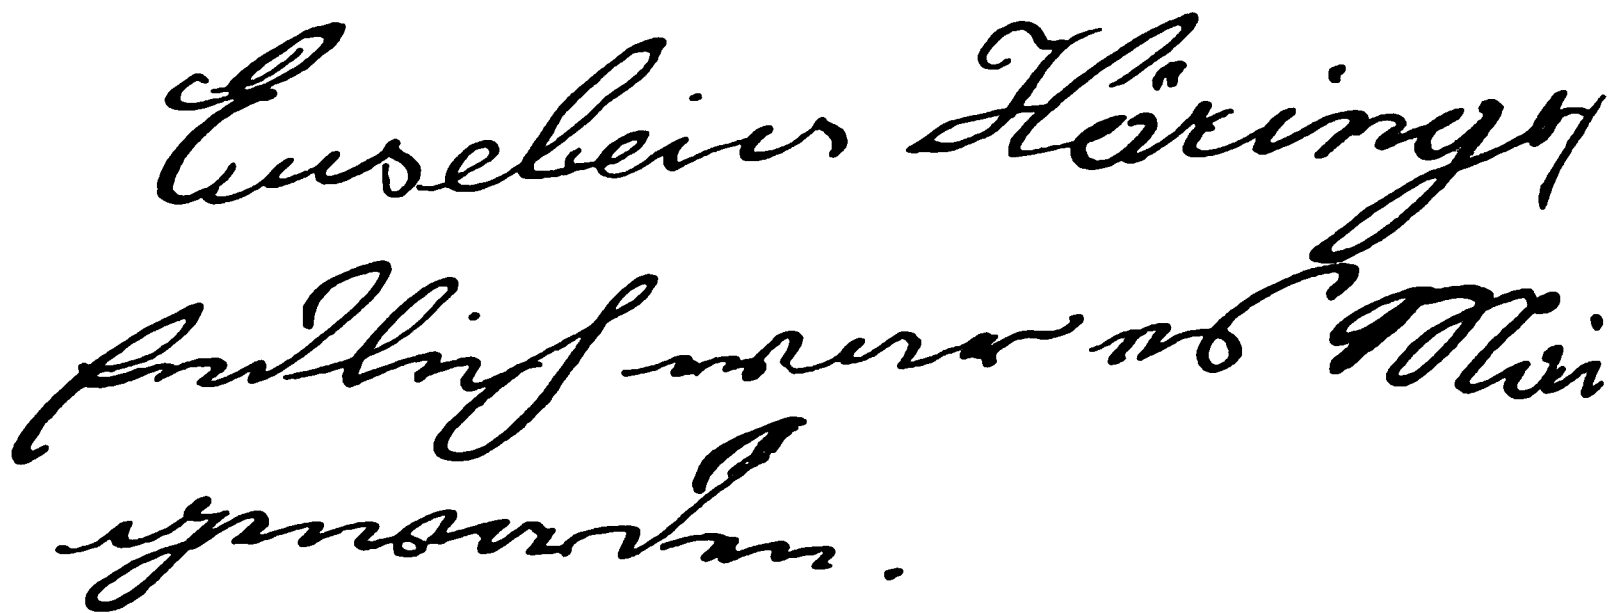 Eusebius Häring
endlich war es Mai
geworden.